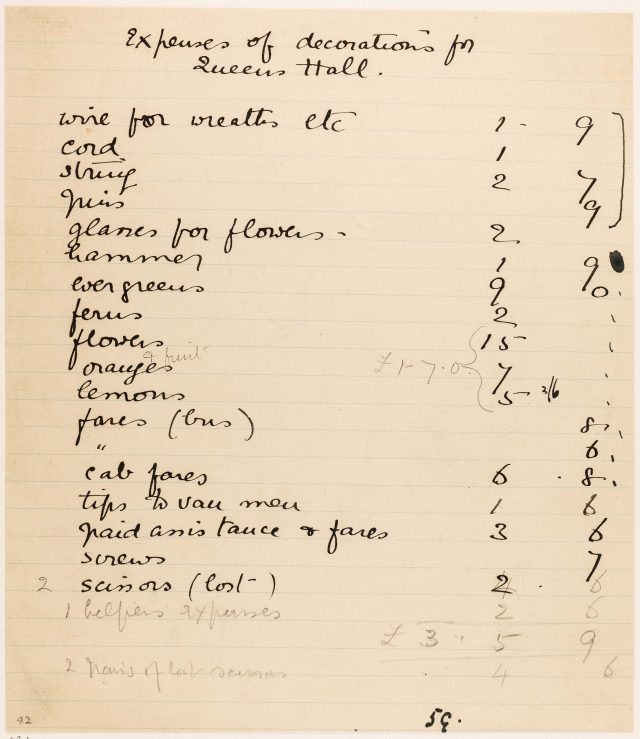 Expenses of decorations for
Queens Hall.
wire for wreaths etc 1 - 9
cord 1
string 2 7
pins 9
glasses for flowers - 2
hammer 1 9
evergreens 9 0
ferns 2
flowers 15
& fruit
oranges £1-7.0 7
lemons 5 2/6
fares (bus) 8
" 6
cab fares 6 . 8
tips to van men 1 6
paid assistance & fares 3 6
screws 7
2 scissors (lost) 2 . 6
1 helpers expenses 2 6
£ 3 . 5 9
2 pairs of lost scissors 4 6
59.
92